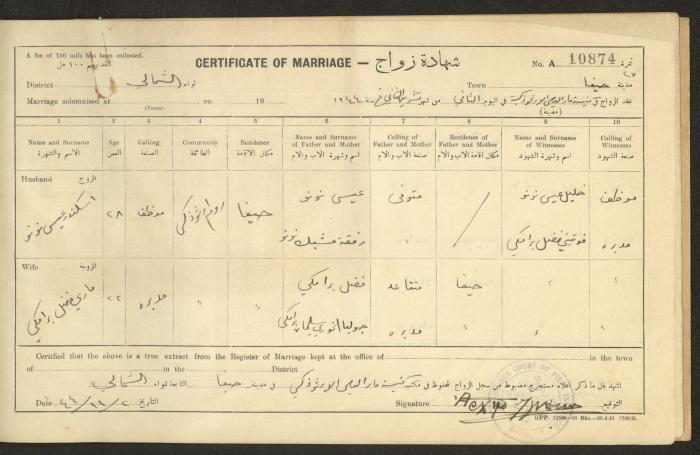 A fee of 100 mils has been collected.
CERTIFICATE OF MARRIAGE — شهادة زواج
No. A 10874 نمرة
District لواء الشمالي
Town حيفا مدينة
Marriage solemnised at on 19 ١٩٤٤ من شهر تشرين الثاني في اليوم الثاني عقد الزواج في كنيسة مار الياس الارثوذكسية
(Town) (مدينة)
1 2 3 4 5 6 7 8 9 10
Name and Surname Age Calling Community Residence Name and Surname of Father and Mother Calling of Father and Mother Residence of Father and Mother Name and Surname of Witnesses Calling of Witnesses
الاسم والشهرة العمر الصنعة الطائفة مكان الاقامة اسم وشهرة الاب والام صنعة الاب والام مكان اقامة الاب والام اسم وشهرة الشهود صنعة الشهود
Husband الزوج
اسكندر عيسى نونو ٢٨ موظف روم ارثوذكس حيفا عيسى نونو متوفى / خليل عيسى نونو موظف
رفقة نونو " فضل برامكي مدبره
Wife الزوجة
ماري فضل برامكي ٢٢ مدبره " " فضل برامكي متقاعد حيفا " "
جوليا سليمان برامكي مدبره " " "
Certified that the above is a true extract from the Register of Marriage kept at the office of in the town
of in the District
اشهد بان ما ذكر اعلاه مستخرج مضبوط من سجل الزواج المحفوظ في مكتب كنيسة مار الياس الارثوذكسي في مدينة حيفا التابعة للواء الشمالي
Date ٤٤/١١/٢ التاريخ
Signature التوقيع